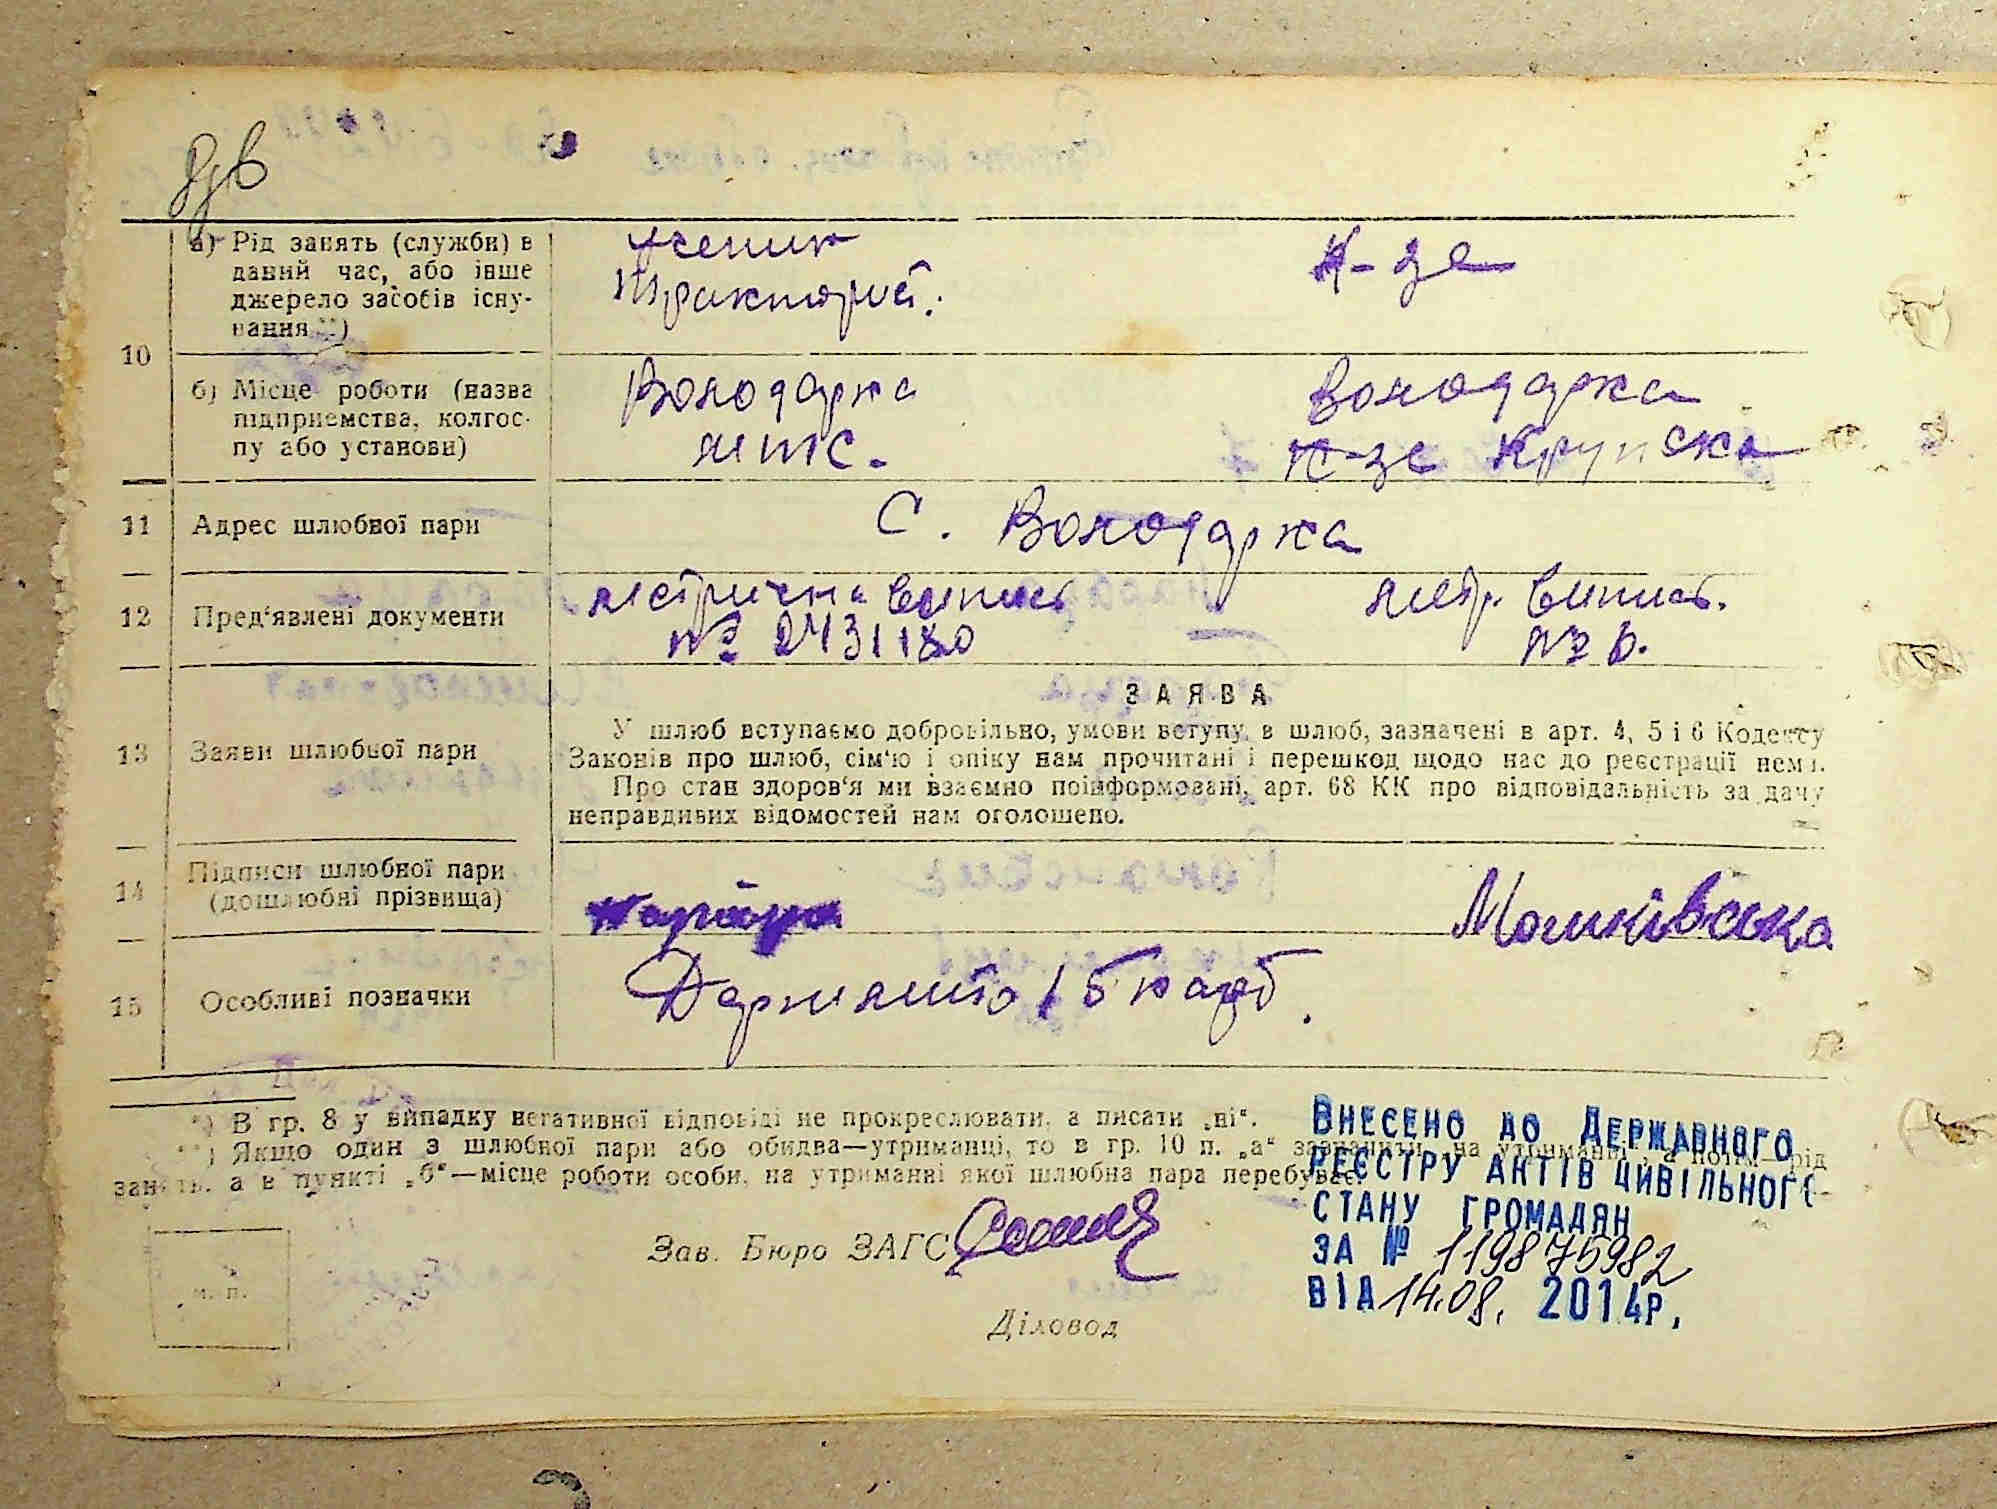 а) Рід занять (служби) в
даний час, або інше
джерело засобів існу-
вання **)
Учепик
тракторист.
К-зе
10
б) Місце роботи (назва
підприємства, колгос-
пу або установи)
Володарка
МТС.
Володарка
К-зе Крупска
11 Адрес шлюбної пари
С. Володарка
12 Пред'явлені документи
метрична випись
№ 2431180
метр. випись.
№ 6.
ЗАЯВА
13 Заяви шлюбної пари
У шлюб вступаємо добровільно, умови вступу в шлюб, зазначені в арт. 4, 5 і 6 Кодексу
Законів про шлюб, сім'ю і опіку нам прочитані і перешкод щодо нас до реєстрації нема.
Про стан здоров'я ми взаємно поінформовані, арт. 68 КК про відповідальність за дачу
неправдивих відомостей нам оголошено.
14 Підписи шлюбної пари
(дошлюбні прізвища)
Машківська
15 Особливі позначки
Держмито 15 карб.
*) В гр. 8 у випадку негативної відповіді не прокреслювати, а писати „ні“.
**) Якщо один з шлюбної пари або обидва—утриманці, то в гр. 10 п. „а“ зазначити „на утриманні“, а потім—рід
занять, а в пункті „б“—місце роботи особи, на утриманні якої шлюбна пара перебуває.
Внесено до Державного
реєстру актів цивільного
стану громадян
за № 11987 5982
від 14.08. 2014р.
Зав. Бюро ЗАГС
м. п.
Діловод